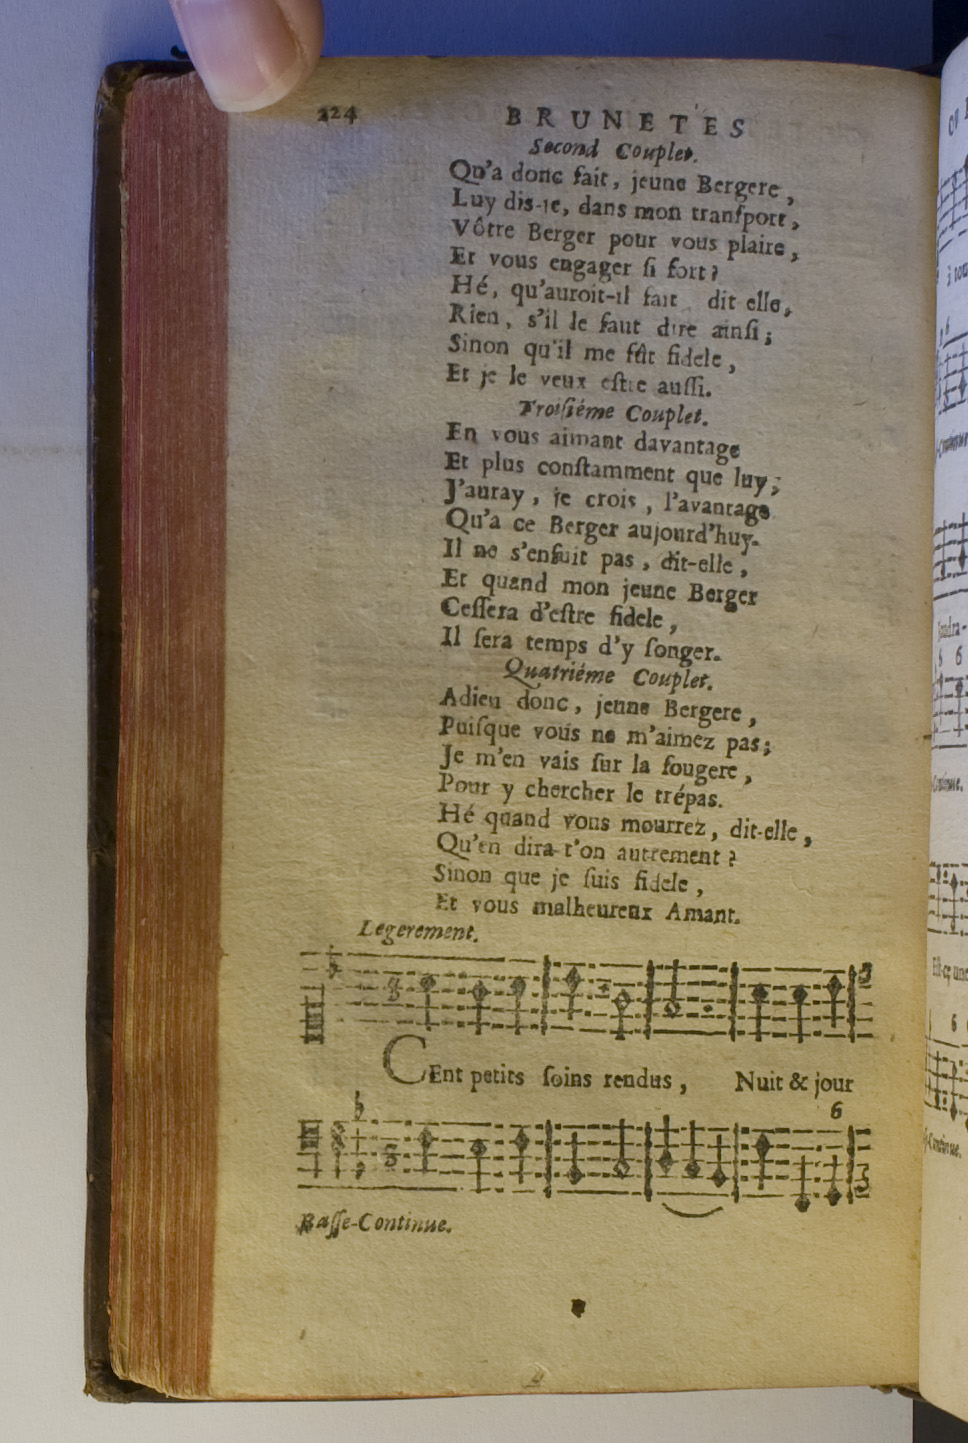 224
BRUNETES
Second Couplet.
Qu'a donc fait, jeune Bergere,
Luy dis-je, dans mon tranſport,
Vôtre Berger pour vous plaire,
Et vous engager ſi fort?
Hé, qu'auroit-il fait dit elle,
Rien, s'il le faut dire ainſi;
Sinon qu'il me fût fidele,
Et je le veux eſtre auſſi.
Troiſiéme Couplet.
En vous aimant davantage
Et plus conſtamment que luy;
J'auray, je crois, l'avantage
Qu'a ce Berger aujourd'huy.
Il ne s'enſuit pas, dit-elle,
Et quand mon jeune Berger
Ceſſera d'eſtre fidele,
Il ſera temps d'y ſonger.
Quatriéme Couplet.
Adieu donc, jeune Bergere,
Puiſque vous ne m'aimez pas;
Je m'en vais ſur la fougere,
Pour y chercher le trépas.
Hé quand vous mourrez, dit-elle,
Qu'en dira-t'on autrement?
Sinon que je ſuis fidele,
Et vous malheureux Amant.
Legerement.
3
CEnt petits ſoins rendus, Nuit & jour
6
3
Baſſe-Continue.
à
6
6 6
-Continue.
6
-Continue.